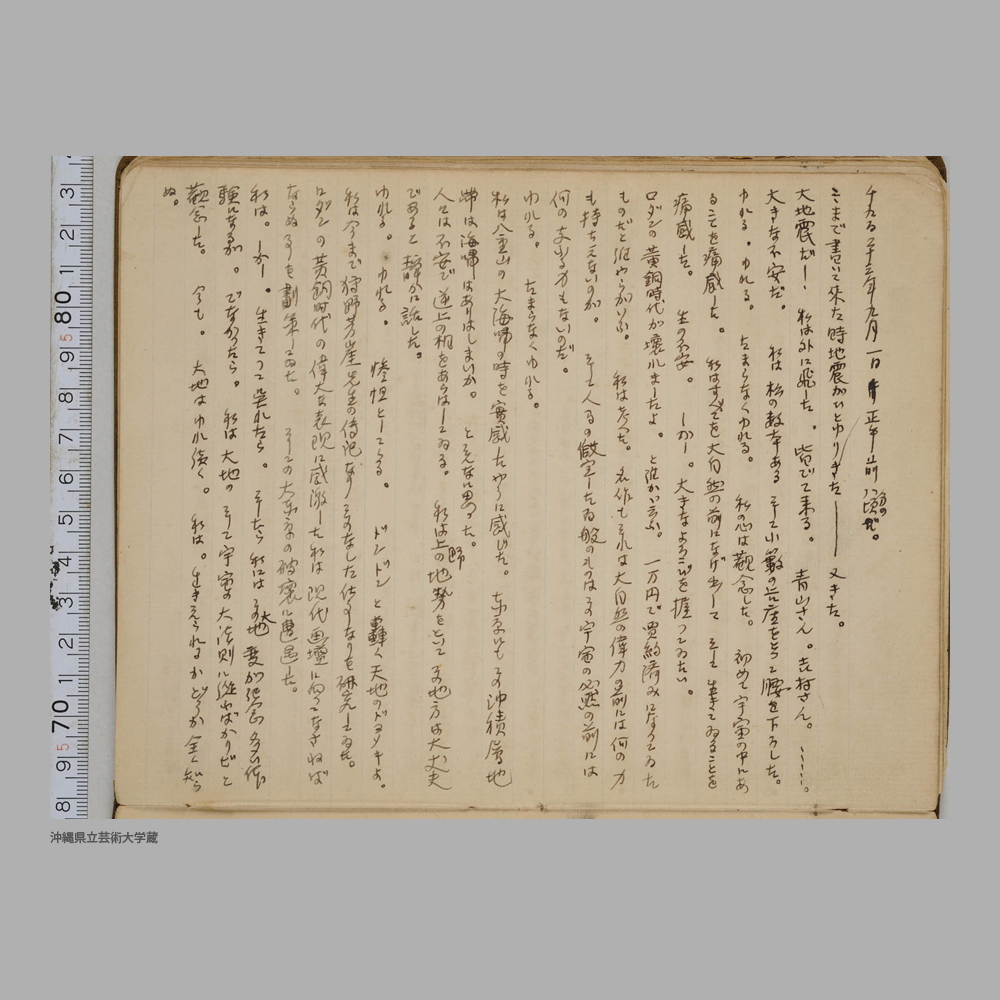 千九百二十三年九月一日 正午前頃だ。
こゝまで書いて来た時地震がひとゆりきた―― 又きた。
大地震だ! 私は外に飛した。皆でて来る。 青山さん。吉村さん。……。
大きな不安だ。 私は 松の数本ある そして小数の 座をとって腰を下ろした。
ゆれる。ゆれる。 たまらなくゆれる。 私の心は観念した。 初めて宇宙の中にあ
ることを痛感した。 私はすべてを大自然の前になげ出して そして 生きてゐることを
痛感した。 生の不安。 しかし。大きなよろこびを握ってゐたい。
ロダンの黄銅時代が壊れましたよ。と誰かゞ云ふ。一万円で買約済みになってゐた
ものだと誰やらがいふ。 私は考へた。 名作も それは大自然の偉力の前には何の力
も持ちえないのか。 そして人間の做宝した百般のものはその宇宙の必然の前には
何の支ふる力もないのだ。
ゆれる。 たまらなくゆれる。
私は八重山の大海嘯の時を実感したやうに感じた。 東京にもその沖積層地
帯は海嘯はありはしまいか。 とそんなに思った。
人々は不安で 逆上の相をあらはしてゐる。 私は上野の地勢をといて この地方は大丈夫
であると静かに話した。
ゆれる。 ゆれる。 惨怛としてくる。 ドンドン と轟く天地のドヨメキよ。
私は今まで狩野芳崖先生の傳記 なりそのなした仕事なりを研究してゐた。
ロダンの黄銅時代の偉大な表現に感激した私は 現代画壇に向ってなさねば
ならぬ事を劃策してゐた。 そしてこの大東京の破壊に遭遇した。
私は。しかし。生きてこゝに 出れたら。 そしたら 私には この大地変が記念
験になるか。 でなかったら。 私は大地の そして宇宙の大法則に従ふばかりだと
観念した。 今も。 大地はゆれ続く。 私は。生きえられるかどうか全く知ら
ぬ。
3 2 1 80 9 5 8 7 6 5 4 3 2 1 70 9 5 8
沖縄県立芸術大学蔵